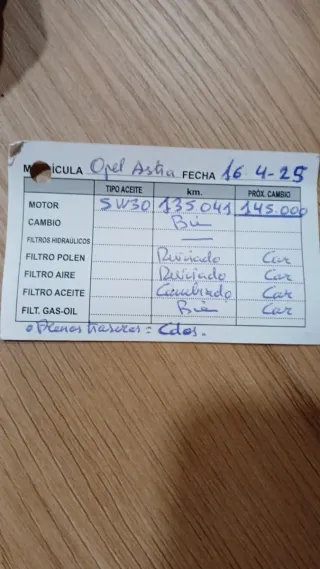 MATRÍCULA Opel Astra FECHA 16-4-25
TIPO ACEITE km. PRÓX. CAMBIO
MOTOR 5W30 135.041 145.000
CAMBIO Bien
FILTROS HIDRAÚLICOS —
FILTRO POLEN Revisado Car
FILTRO AIRE Revisado Car
FILTRO ACEITE Cambiado Car
FILT. GAS-OIL Bien Car
o Frenos traseros = Cdos.